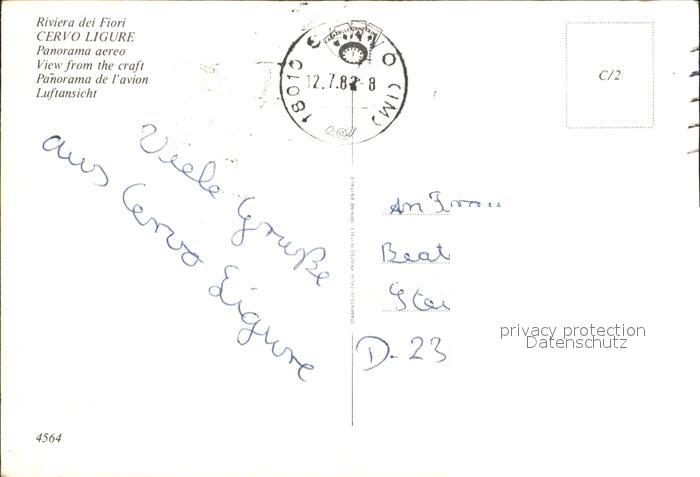 Riviera dei Fiori
CERVO LIGURE
Panorama aereo
View from the craft
Panorama de l'avion
Luftansicht
18010 CERVO (IM)
12.7.82-8
C/2
Viele Grüße
aus Cervo Ligure
An
Beat
D-23
STAMPATO IN ITALIA PRINTED IN ITALY IMPRIMÉ EN ITALIE
privacy protection
Datenschutz
4564